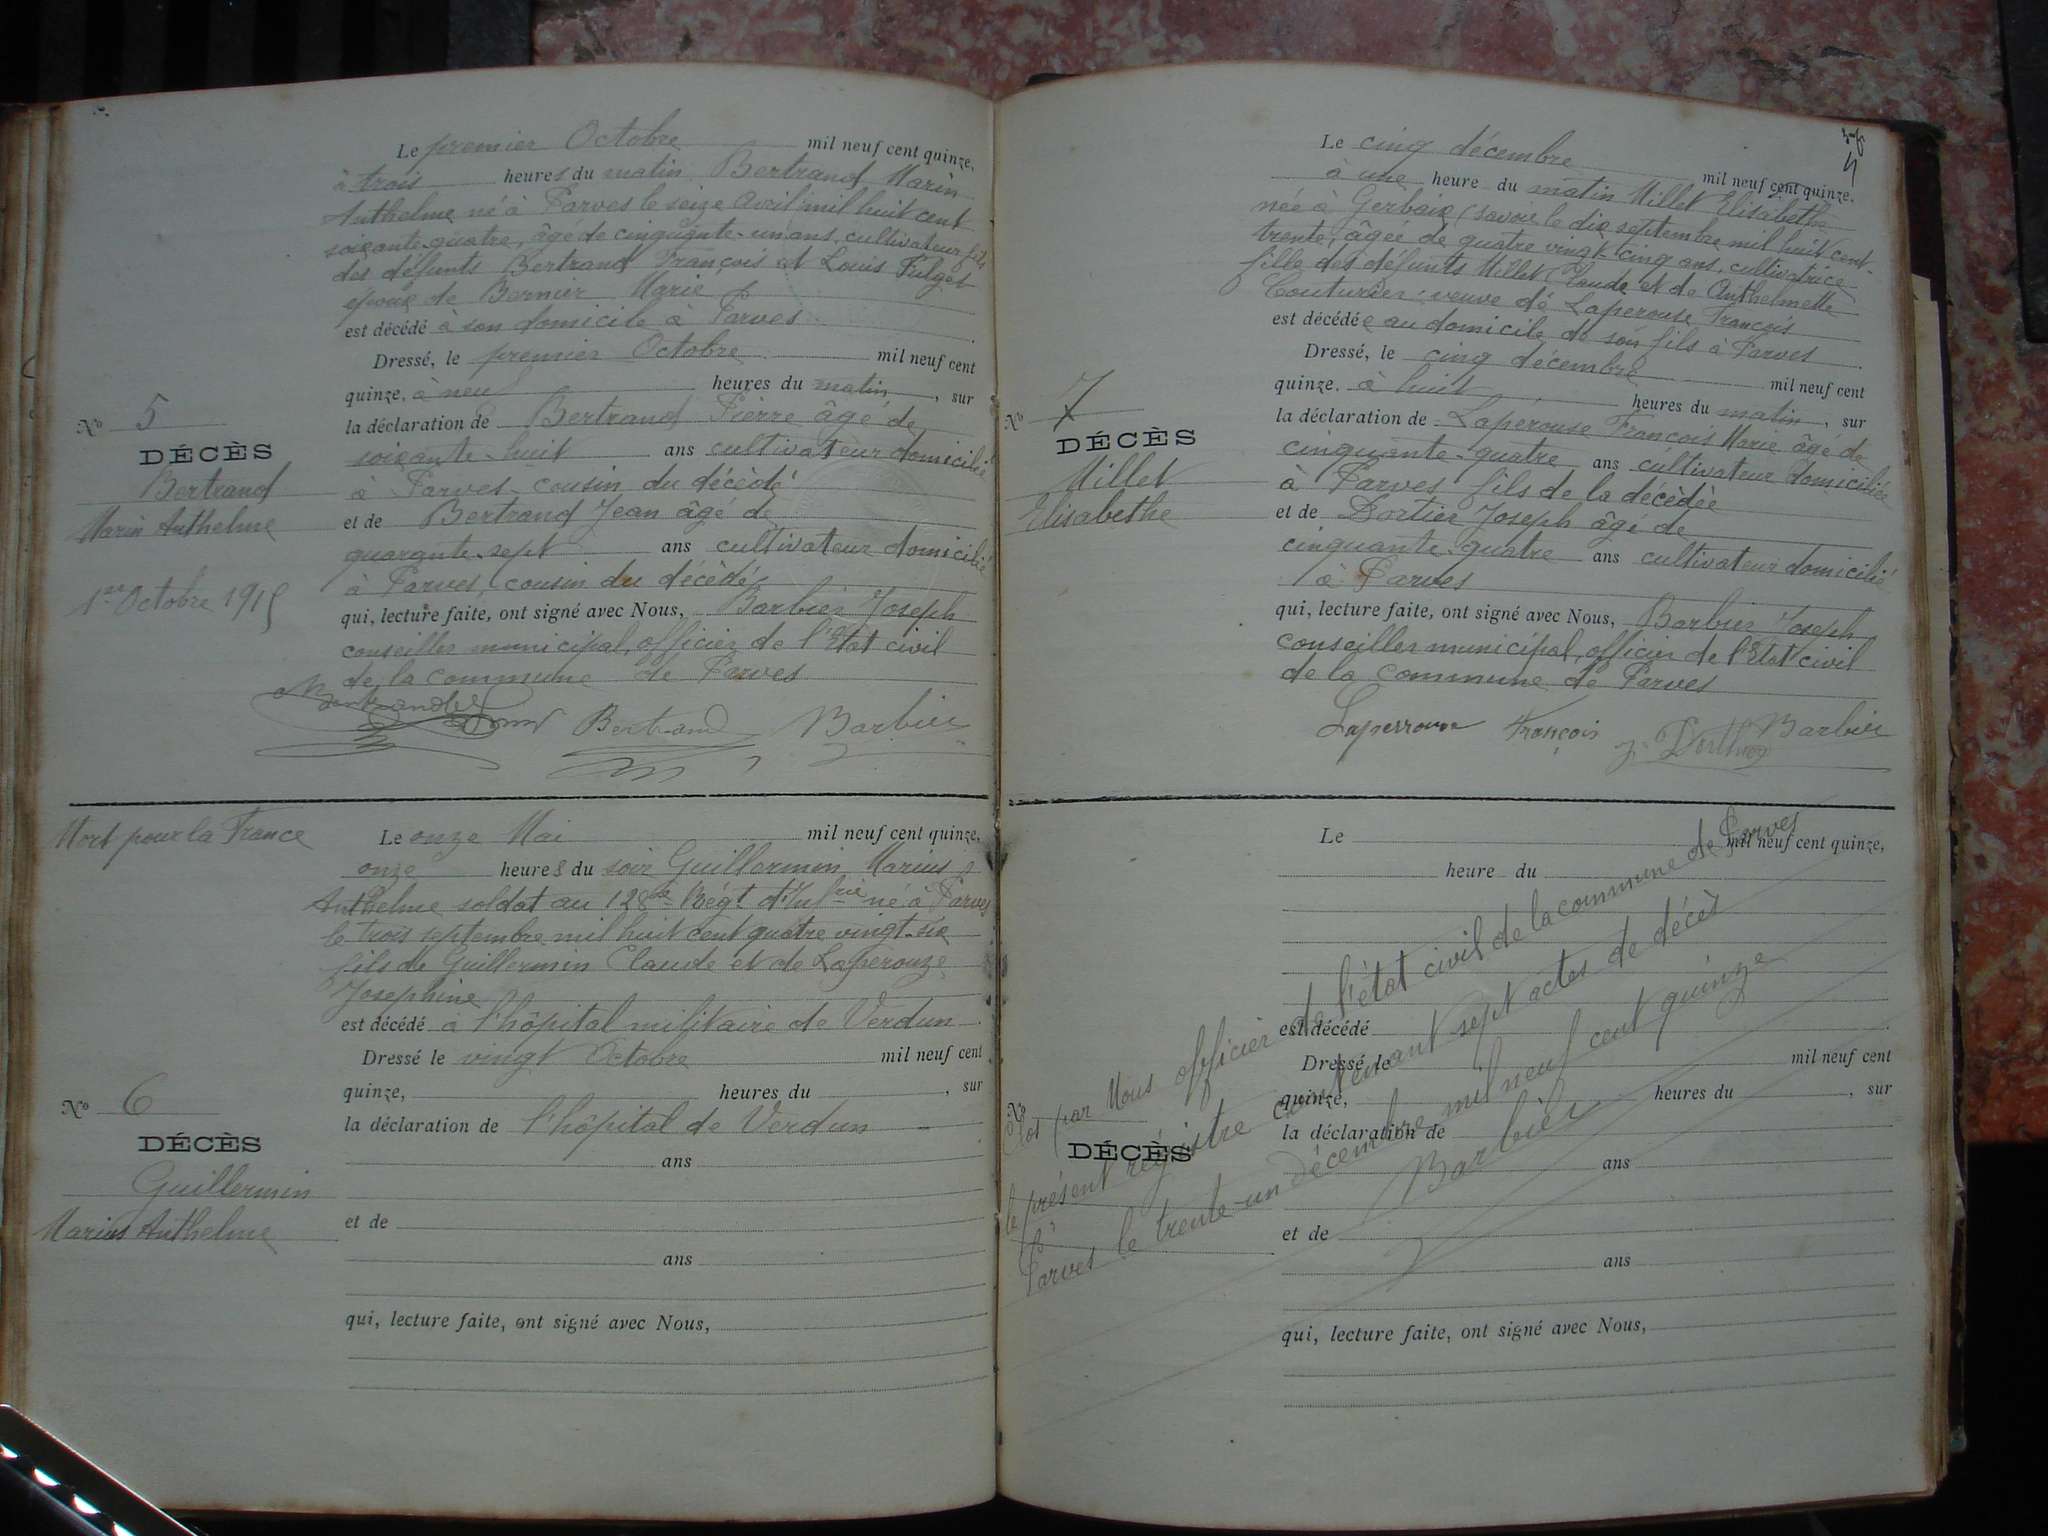 Le premier Octobre mil neuf cent quinze,
à trois heures du matin Bertrand Marin
Anthelme né à Parves le seize Avril mil huit cent
soixante-quatre, âgé de cinquante-un ans, cultivateur fils
des défunts Bertrand François et Louis
époux de Bernier Marie
est décédé à son domicile à Parves
Dressé, le premier Octobre mil neuf cent
quinze, à neuf heures du matin, sur
la déclaration de Bertrand Pierre âgé de
soixante-huit ans cultivateur domicilié
à Parves cousin du décédé
et de Bertrand Jean âgé de
quarante-sept ans cultivateur domicilié
à Parves, cousin du décédé
qui, lecture faite, ont signé avec Nous, Barbier Joseph
conseiller municipal, officier de l'Etat civil
de la commune de Parves
Bertrand Barbier
No 5
DÉCÈS
Bertrand
Marin Anthelme
1er Octobre 1915
Mort pour la France
Le onze Mai mil neuf cent quinze,
onze heures du soir Guillermin Marius
Anthelme soldat au 128e Régt d'Infrie né à Parves
le trois septembre mil huit cent quatre vingt-six
fils de Guillermin Claude et de Laperouze
Josephine
est décédé à l'hôpital militaire de Verdun
Dressé le vingt Octobre mil neuf cent
quinze, heures du , sur
la déclaration de l'hôpital de Verdun
ans
et de
ans
qui, lecture faite, ont signé avec Nous,
No 6
DÉCÈS
Guillermin
Marius Anthelme
Le cinq décembre mil neuf cent quinze,
à une heure du matin Millet Elisabethe
née à Gerbaix (savoie le dix septembre mil huit cent
trente, âgée de quatre vingt-cinq ans, cultivatrice
fille des défunts Millet Claude et de Anthelmette
Couturier: veuve de Laperouse François
est décédée au domicile de son fils à Parves
Dressé, le cinq décembre mil neuf cent
quinze, à huit heures du matin, sur
la déclaration de Laperouse François Marie âgé de
cinquante-quatre ans cultivateur domicilié
à Parves fils de la décèdèe
et de Dortier Joseph âgé de
cinquante-quatre ans cultivateur domicilié
à Parves
qui, lecture faite, ont signé avec Nous, Barbier Joseph
conseiller municipal, officier de l'Etat civil
de la commune de Parves
Laperrouse François Barbier
No 7
DÉCÈS
Millet
Elisabethe
Le mil neuf cent quinze,
heure du
est décédé
Dressé, le mil neuf cent
quinze, heures du , sur
la déclaration de
ans
et de
ans
qui, lecture faite, ont signé avec Nous,
No
DÉCÈS
Clos par Nous officier de l'état civil de la commune de Parves
le présent registre contenant sept actes de décès
à Parves le trente-un décembre mil neuf cent quinze
Barbier